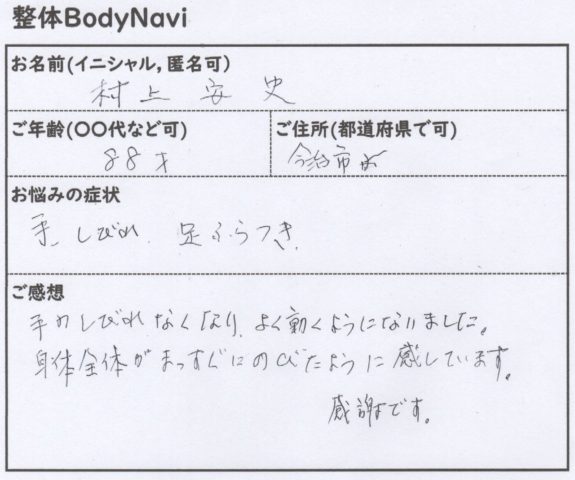 整体BodyNavi
お名前(イニシャル,匿名可)
村上 安史
ご年齢(〇〇代など可)
88才
ご住所(都道府県で可)
今治市
お悩みの症状
手、しびれ、足ふらつき
ご感想
手のしびれなくなり、よく動くようになりました。
身体全体がまっすぐにのびたように感じています。
感謝です。